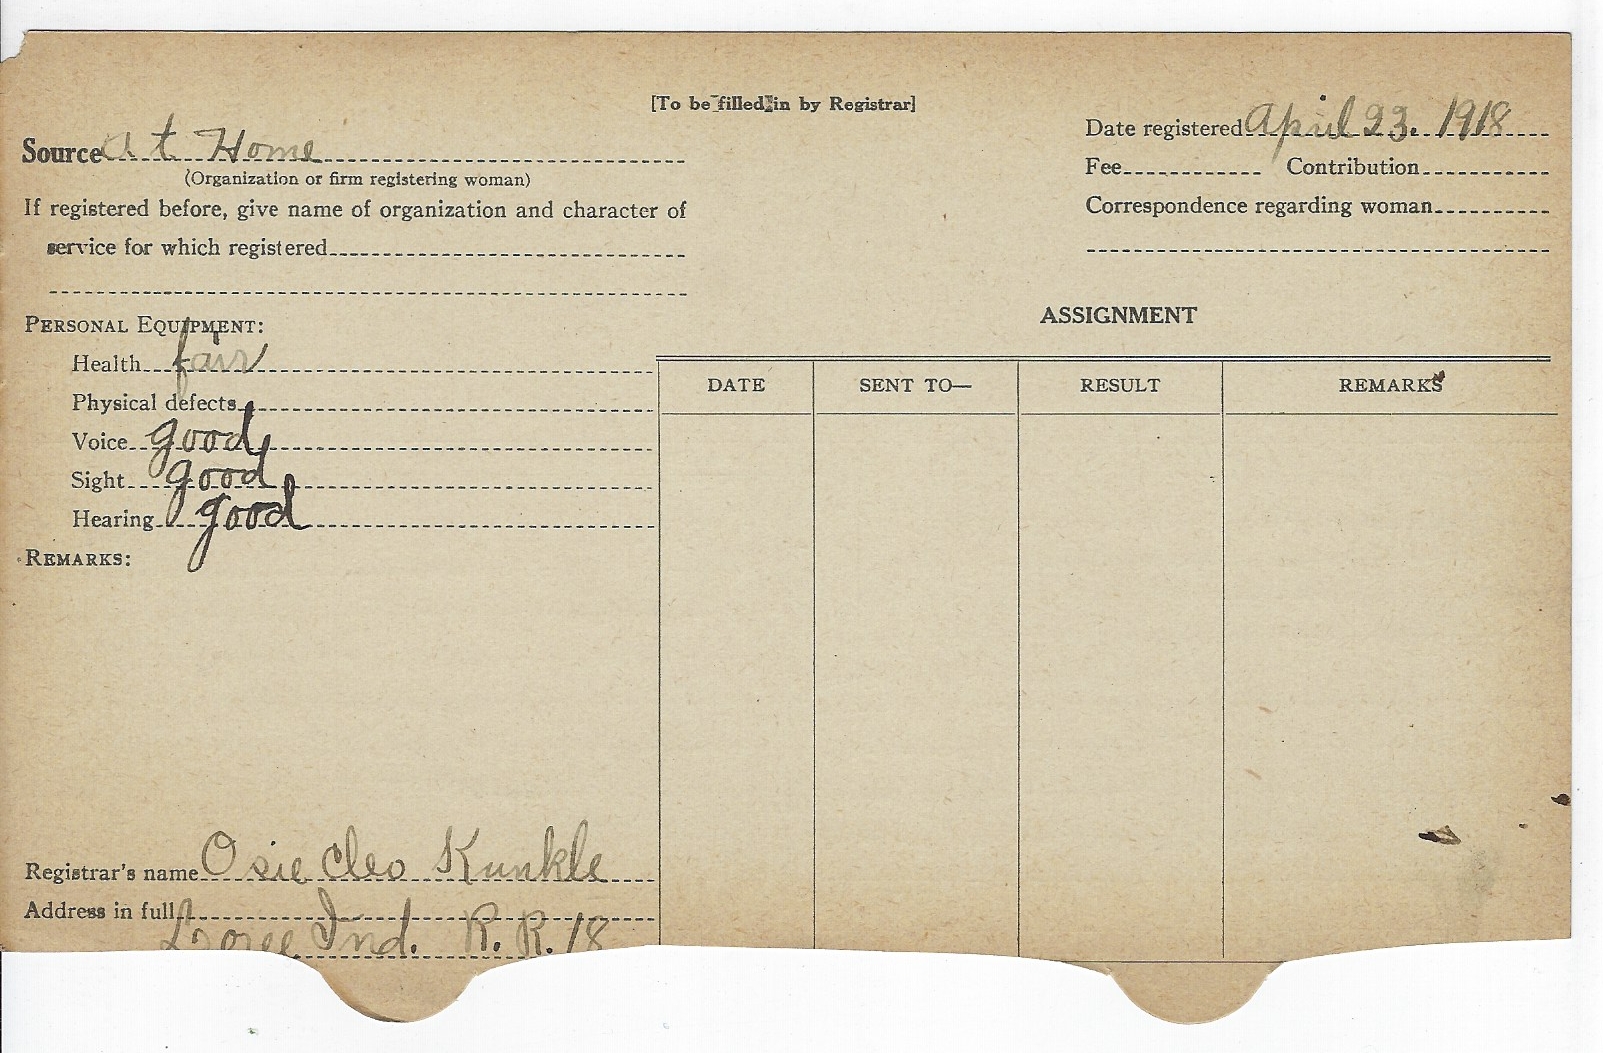 [To be filled in by Registrar]
Source At Home
(Organization or firm registering woman)
If registered before, give name of organization and character of
service for which registered
Date registered April 23. 1918
Fee Contribution
Correspondence regarding woman
PERSONAL EQUIPMENT:
Health fair
Physical defects
Voice good
Sight good
Hearing good
REMARKS:
ASSIGNMENT
DATE SENT TO— RESULT REMARKS
Registrar's name Osie Cleo Kunkle
Address in full
Loree Ind. R. R. 18